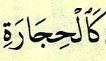 كَٱلْحِجَارَةِ